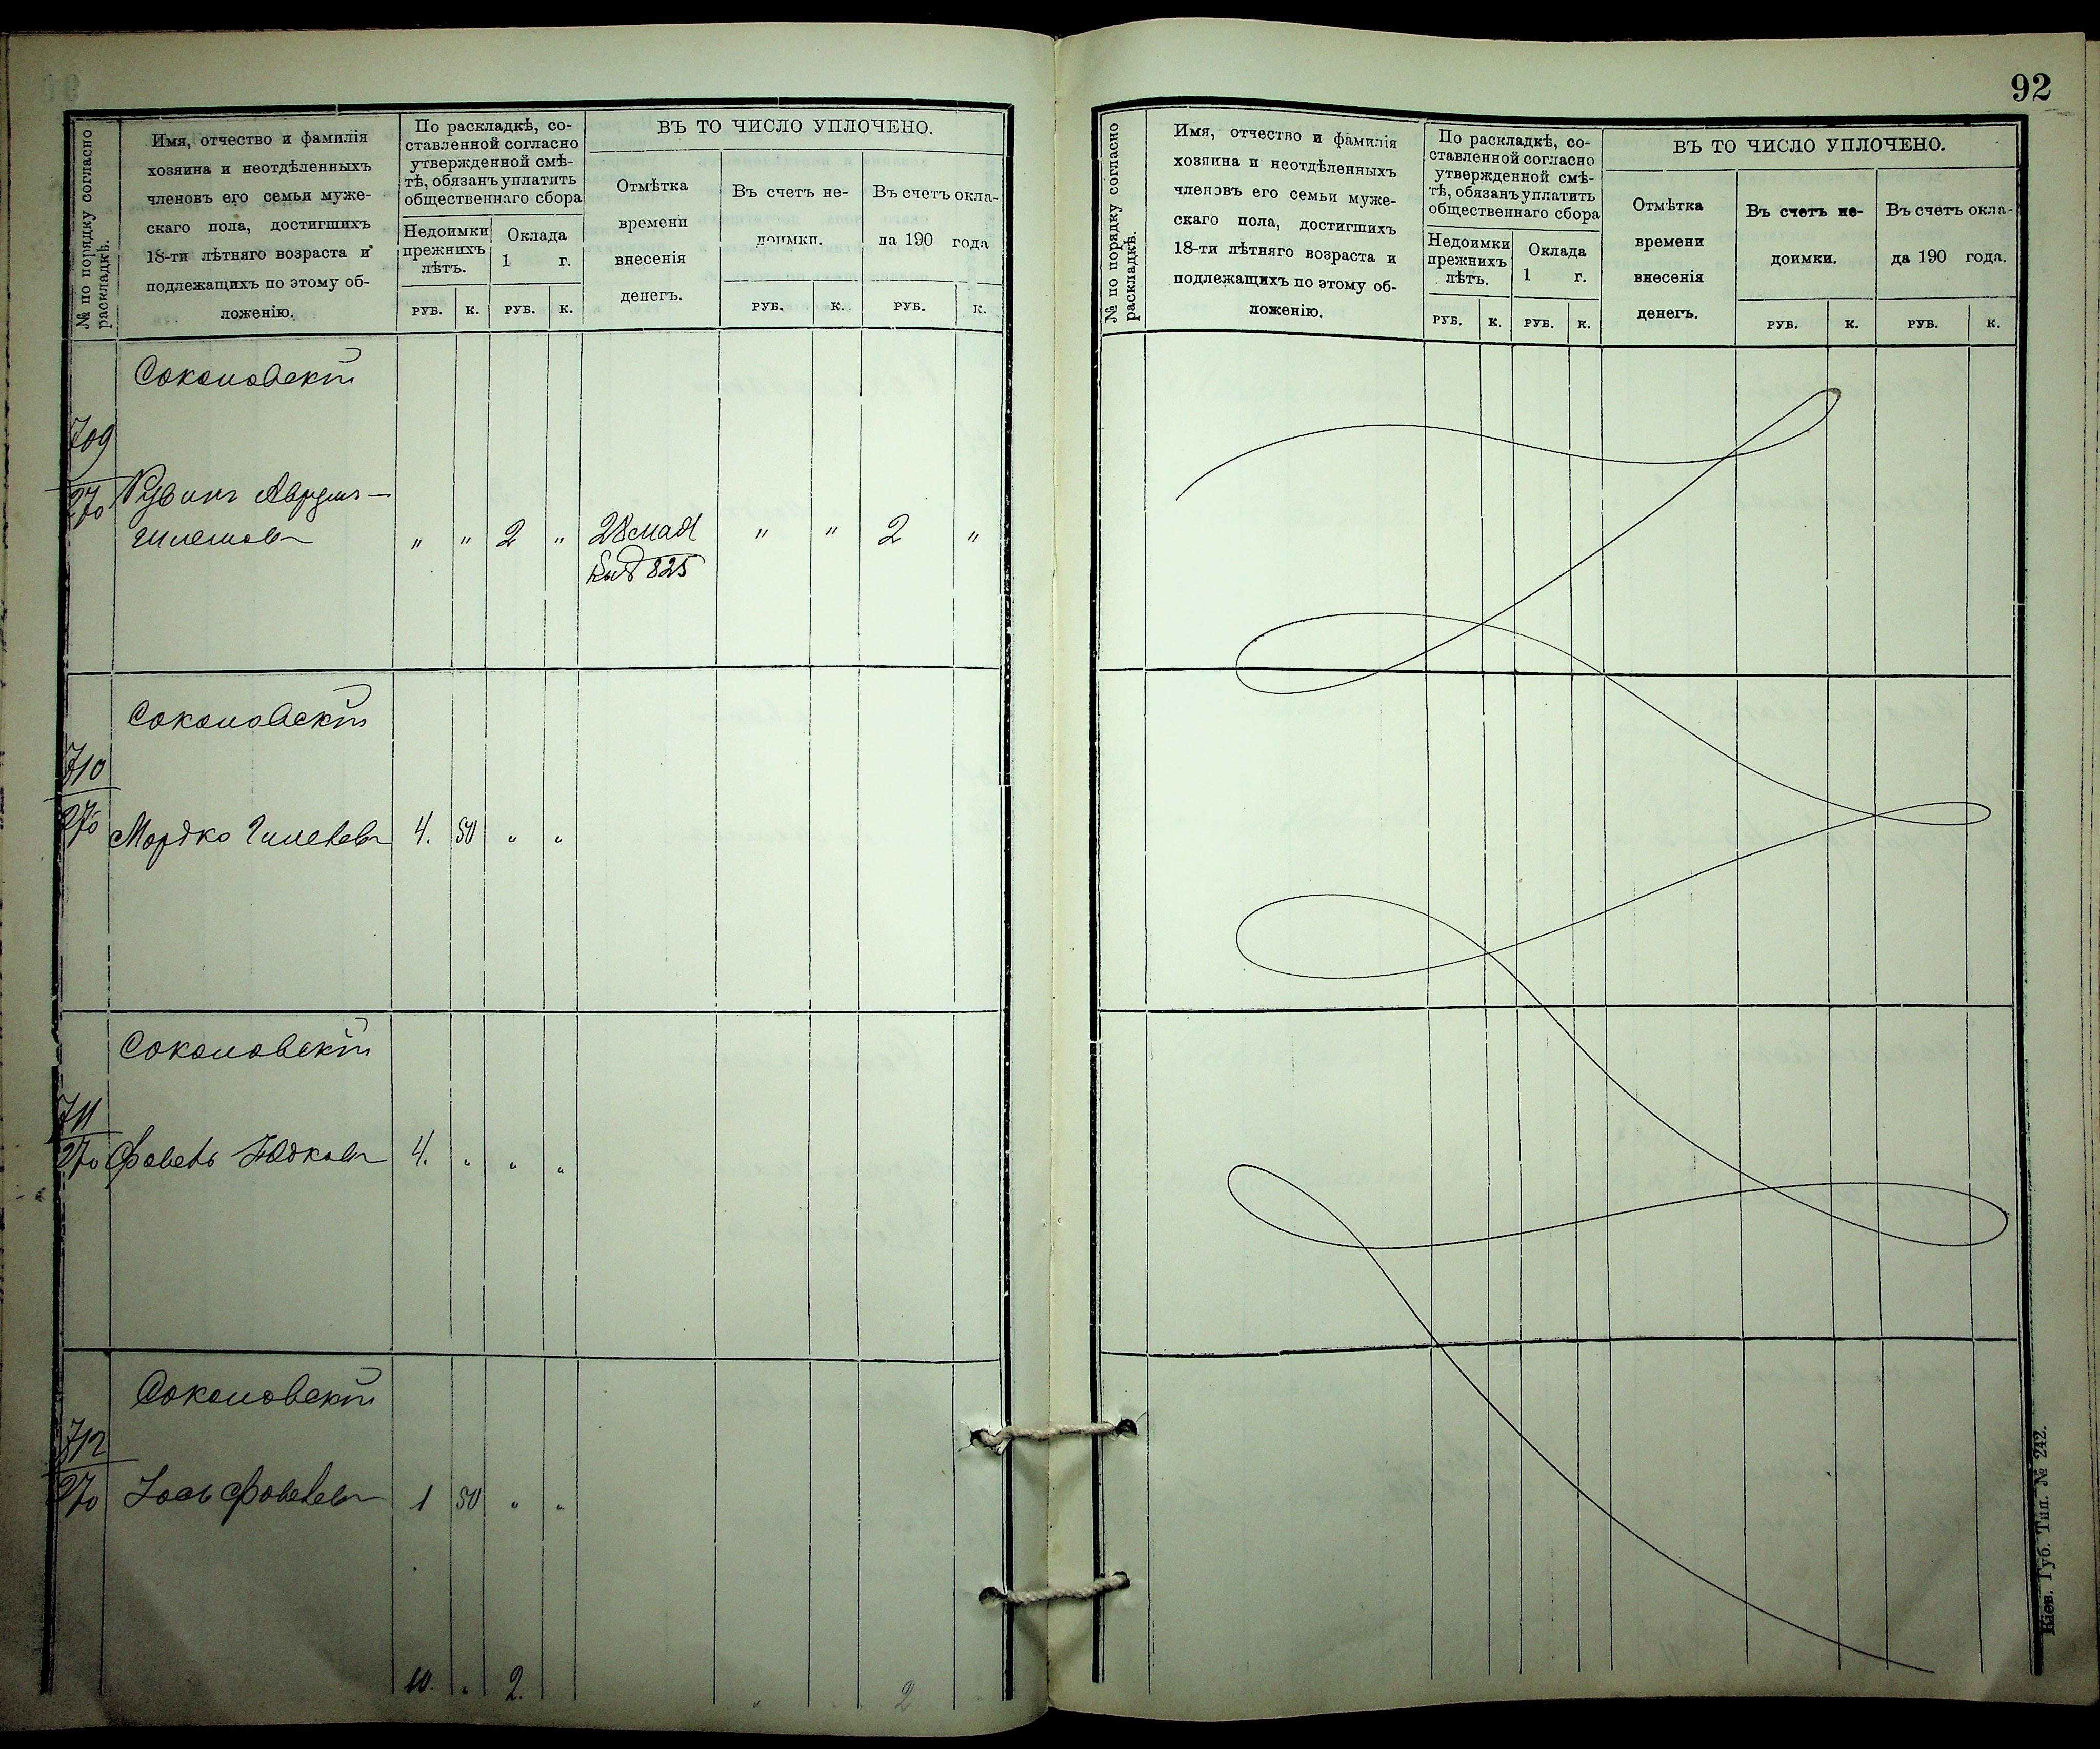 92
№ по порядку согласно раскладкѣ.
Имя, отчество и фамилія
хозяина и неотдѣленныхъ
членовъ его семьи муже-
скаго пола, достигшихъ
18-ти лѣтняго возраста и
подлежащихъ по этому об-
ложенію.
По раскладкѣ, со-
ставленной согласно
утвержденной смѣ-
тѣ, обязанъ уплатить
общественнаго сбора
Недоимки
прежнихъ
лѣтъ.
Оклада
1 г.
РУБ. К. РУБ. К.
ВЪ ТО ЧИСЛО УПЛОЧЕНО.
Отмѣтка
времени
внесенія
денегъ.
Въ счетъ не-
доимки.
Въ счетъ окла-
да 190 года
РУБ. К. РУБ. К.
Соколовскій
709
270
Рувинъ
" " 2 " 28 мая " " 2 "
825
Соколовскій
710
270
Мордко 4. 50 " "
Соколовскій
711
270
Юдковъ 4. " " "
Соколовскій
712
270
Іось 1 50 " "
10. " 2. " 2
№ по порядку согласно раскладкѣ.
Имя, отчество и фамилія
хозяина и неотдѣленныхъ
членовъ его семьи муже-
скаго пола, достигшихъ
18-ти лѣтняго возраста и
подлежащихъ по этому об-
ложенію.
По раскладкѣ, со-
ставленной согласно
утвержденной смѣ-
тѣ, обязанъ уплатить
общественнаго сбора
Недоимки
прежнихъ
лѣтъ.
Оклада
1 г.
РУБ. К. РУБ. К.
ВЪ ТО ЧИСЛО УПЛОЧЕНО.
Отмѣтка
времени
внесенія
денегъ.
Въ счетъ не-
доимки.
Въ счетъ окла-
да 190 года.
РУБ. К. РУБ. К.
Кіев. Губ. Тип. № 242.